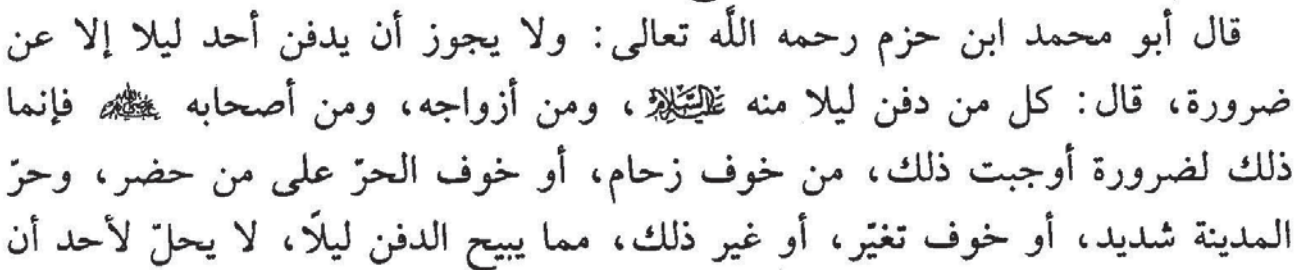 قال أبو محمد ابن حزم رحمه اللَّه تعالى: ولا يجوز أن يدفن أحد ليلا إلا عن
ضرورة، قال: كل من دفن ليلا منه عَلَيْهِ السَّلَام، ومن أزواجه، ومن أصحابه رضي الله عنهم فإنما
ذلك لضرورة أوجبت ذلك، من خوف زحام، أو خوف الحرّ على من حضر، وحرّ
المدينة شديد، أو خوف تغيّر، أو غير ذلك، مما يبيح الدفن ليلًا، لا يحلّ لأحد أن